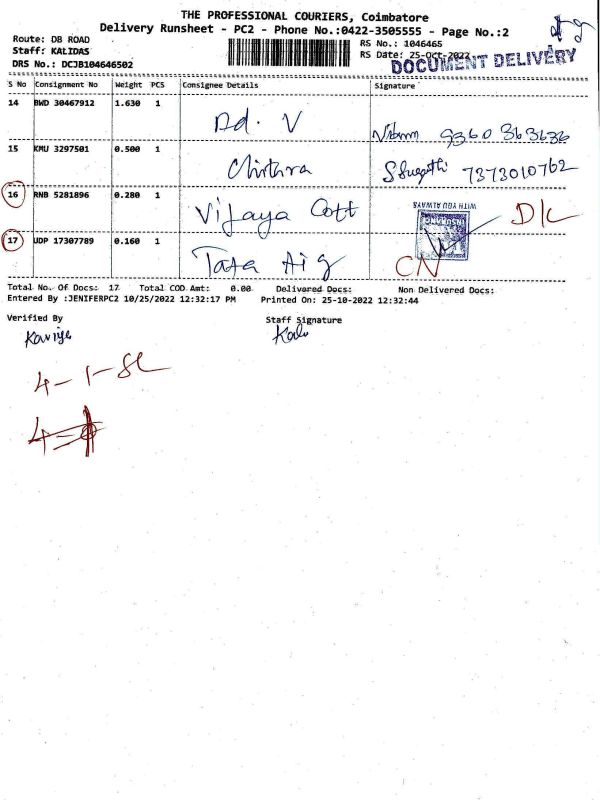 THE PROFESSIONAL COURIERS, Coimbatore
Delivery Runsheet - PC2 - Phone No.:0422-3505555 - Page No.:2
Route: DB ROAD
RS No.: 1046465
Staff: KALIDAS
RS Date: 25-Oct-2022
DRS No.: DCJB104646502
DOCUMENT DELIVERY
S No Consignment No Weight PCS Consignee Details Signature
14 BWD 30467912 1.630 1 Dd. V 9360 363636
15 KMU 3297501 0.500 1 Chithra 7373010762
16 RNB 5281896 0.280 1 Vijaya Cott D/L
WITH YOU ALWAYS
17 UDP 17307789 0.160 1 Tata Aig CN
Total No. Of Docs: 17 Total COD Amt: 0.00 Delivered Docs: Non Delivered Docs:
Entered By :JENIFERPC2 10/25/2022 12:32:17 PM Printed On: 25-10-2022 12:32:44
Verified By Staff Signature
Kaviya Kali
4-1-SL